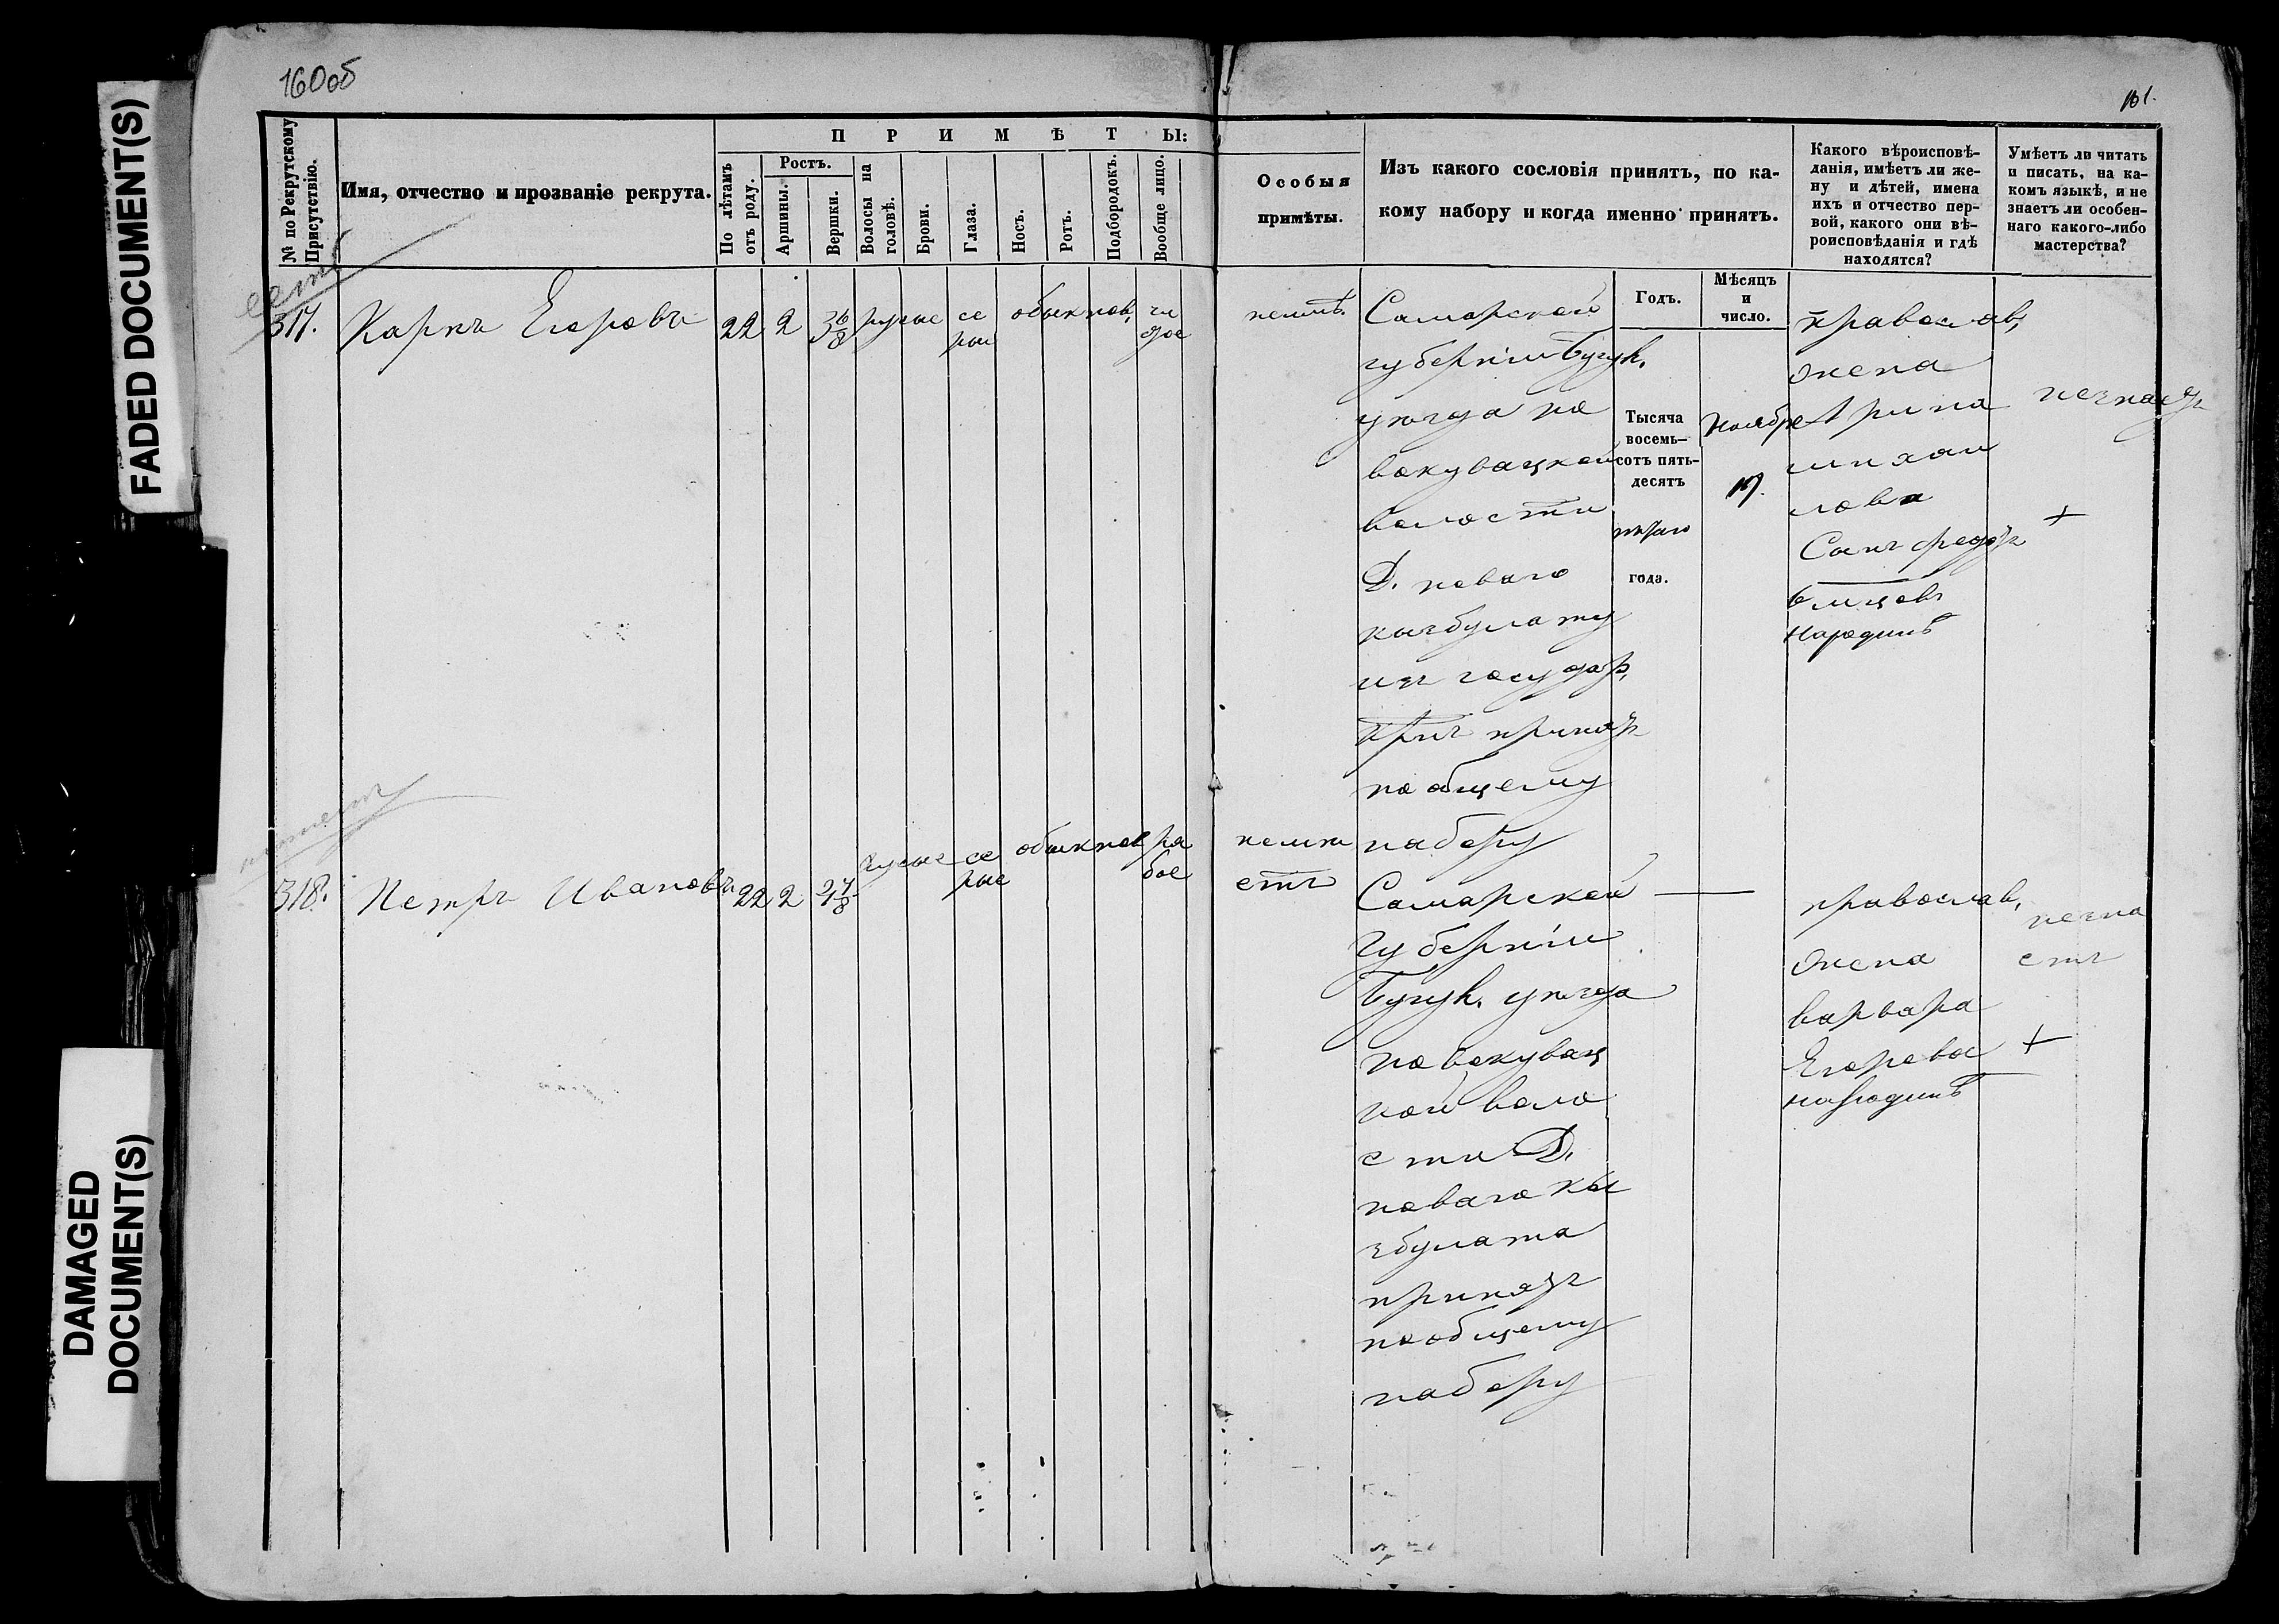 FADED DOCUMENT(S)
DAMAGED
DOCUMENT(S)
160об
161.
№ по Рекрутскому
Присутствію.
Имя, отчество и прозваніе рекрута.
ПРИМѢТЫ:
По лѣтамъ
отъ роду.
Ростъ.
Аршины.
Вершки.
Волосы на
головѣ.
Брови.
Глаза.
Носъ.
Ротъ.
Подбородокъ.
Вообще лицо.
Особыя
примѣты.
Изъ какого сословія принятъ, по ка-
кому набору и когда именно принятъ.
Какого вѣроисповѣ-
данія, имѣетъ ли же-
ну и дѣтей, имена
ихъ и отчество пер-
вой, какого они вѣ-
роисповѣданія и гдѣ
находятся?
Умѣетъ ли читать
и писать, на ка-
комъ языкѣ, и не
знаетъ ли особен-
наго какого-либо
мастерства?
Годъ.
Мѣсяцъ
и
число.
317.
Карпъ Егоровъ
22 2 3 6/8 русые се
рые
обыкнов,
чи
стое
Самарской
губерніи Бугул.
уѣзда но
вокувацкой
волости
Д. новаго
кызбулату
изъ государ,
крес принятъ
по общему
набору
Тысяча
восемь-
сотъ пять-
десятъ
года.
Ноября
православ,
жена
Арина
михаи
лова
Сынъ федоръ
народинѣ
незнаетъ
+
318.
Петръ Ивановъ
22 2 русые се
рые
обыкнов ря
бое
неимѣ
етъ
Самарской
Губерніи
Бугул. уѣзда
новокувац
кой воло
сти Д.
новаго кы
збулата
принятъ
пообщему
набору
православ,
жена
варвара
Егорова
народинѣ
незна
етъ
+